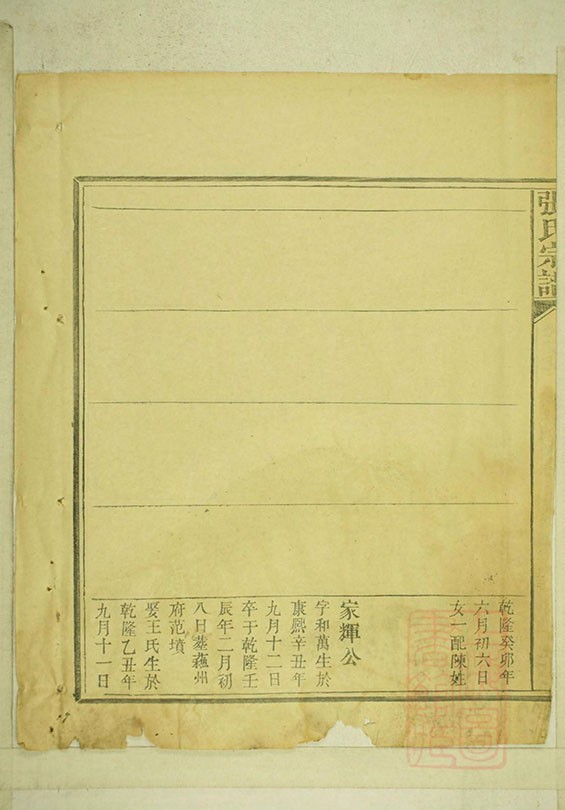 張氏宗譜
乾隆癸卯年
六月初六日
女一配陳姓
家輝公
字和萬生於
康熙辛丑年
九月十二日
卒于乾隆壬
辰年二月初
八日墓蘓州
府范墳
娶王氏生於
乾隆乙丑年
九月十一日